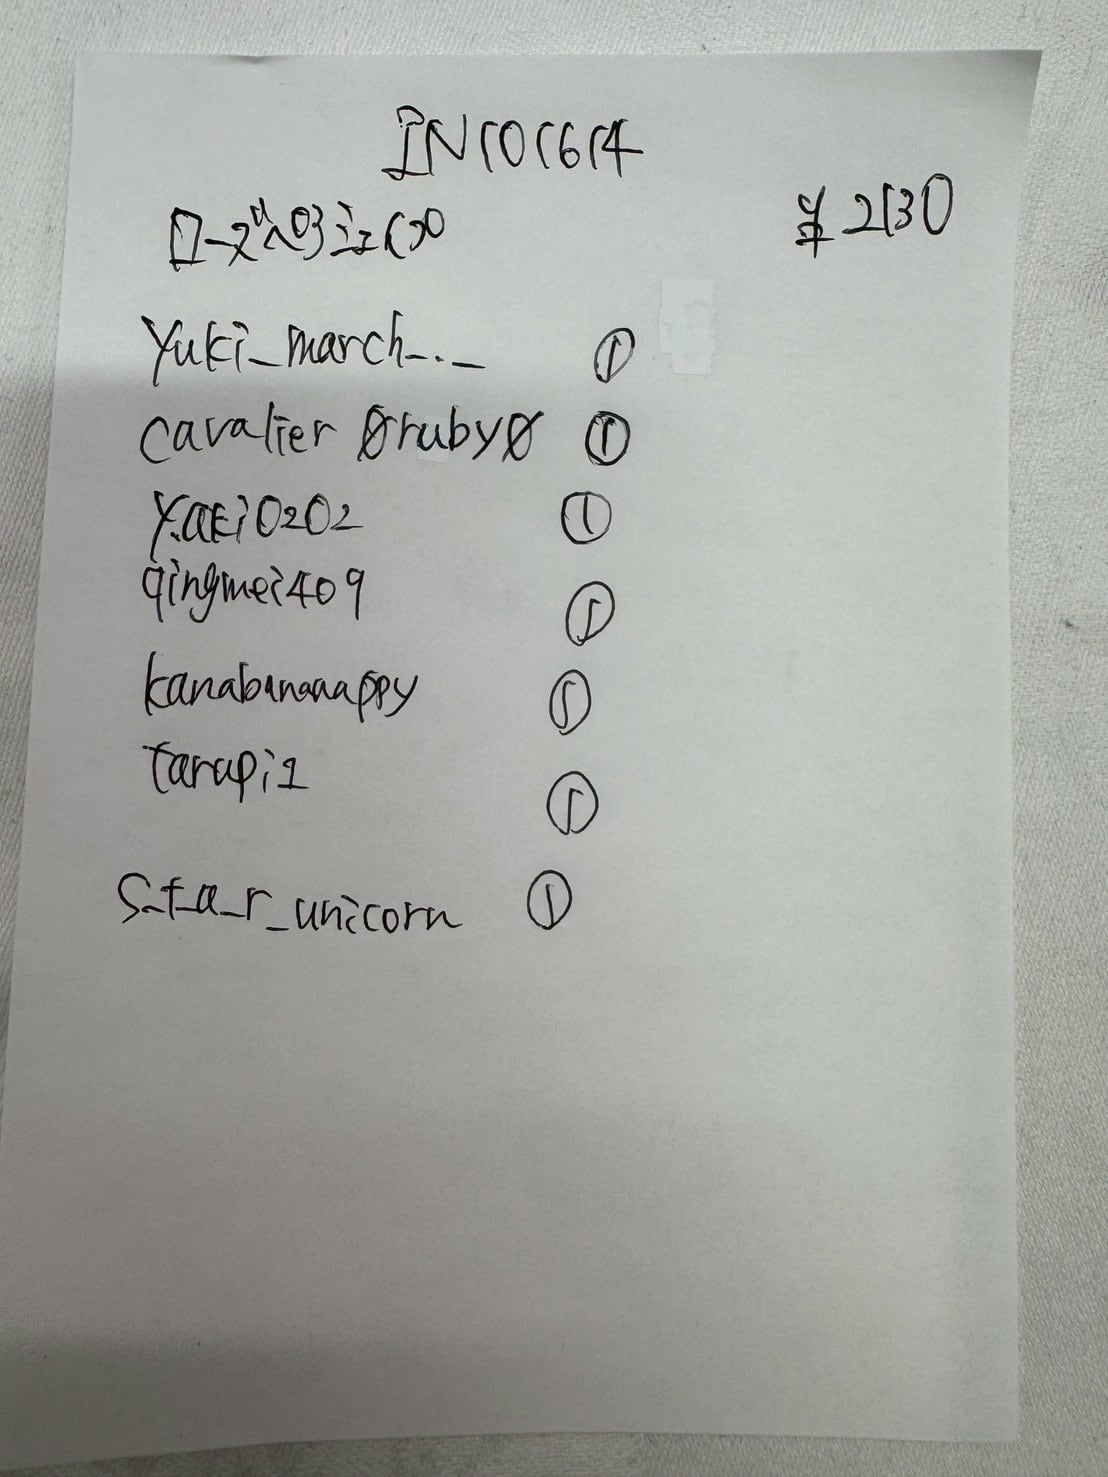 IN101614
¥2130
yuki_march_._
①
cavalier 0ruby0
①
y.aki0202
①
qingmei409
①
kanabanaaappy
①
tarupi1
①
s_t_a_r_unicorn
①